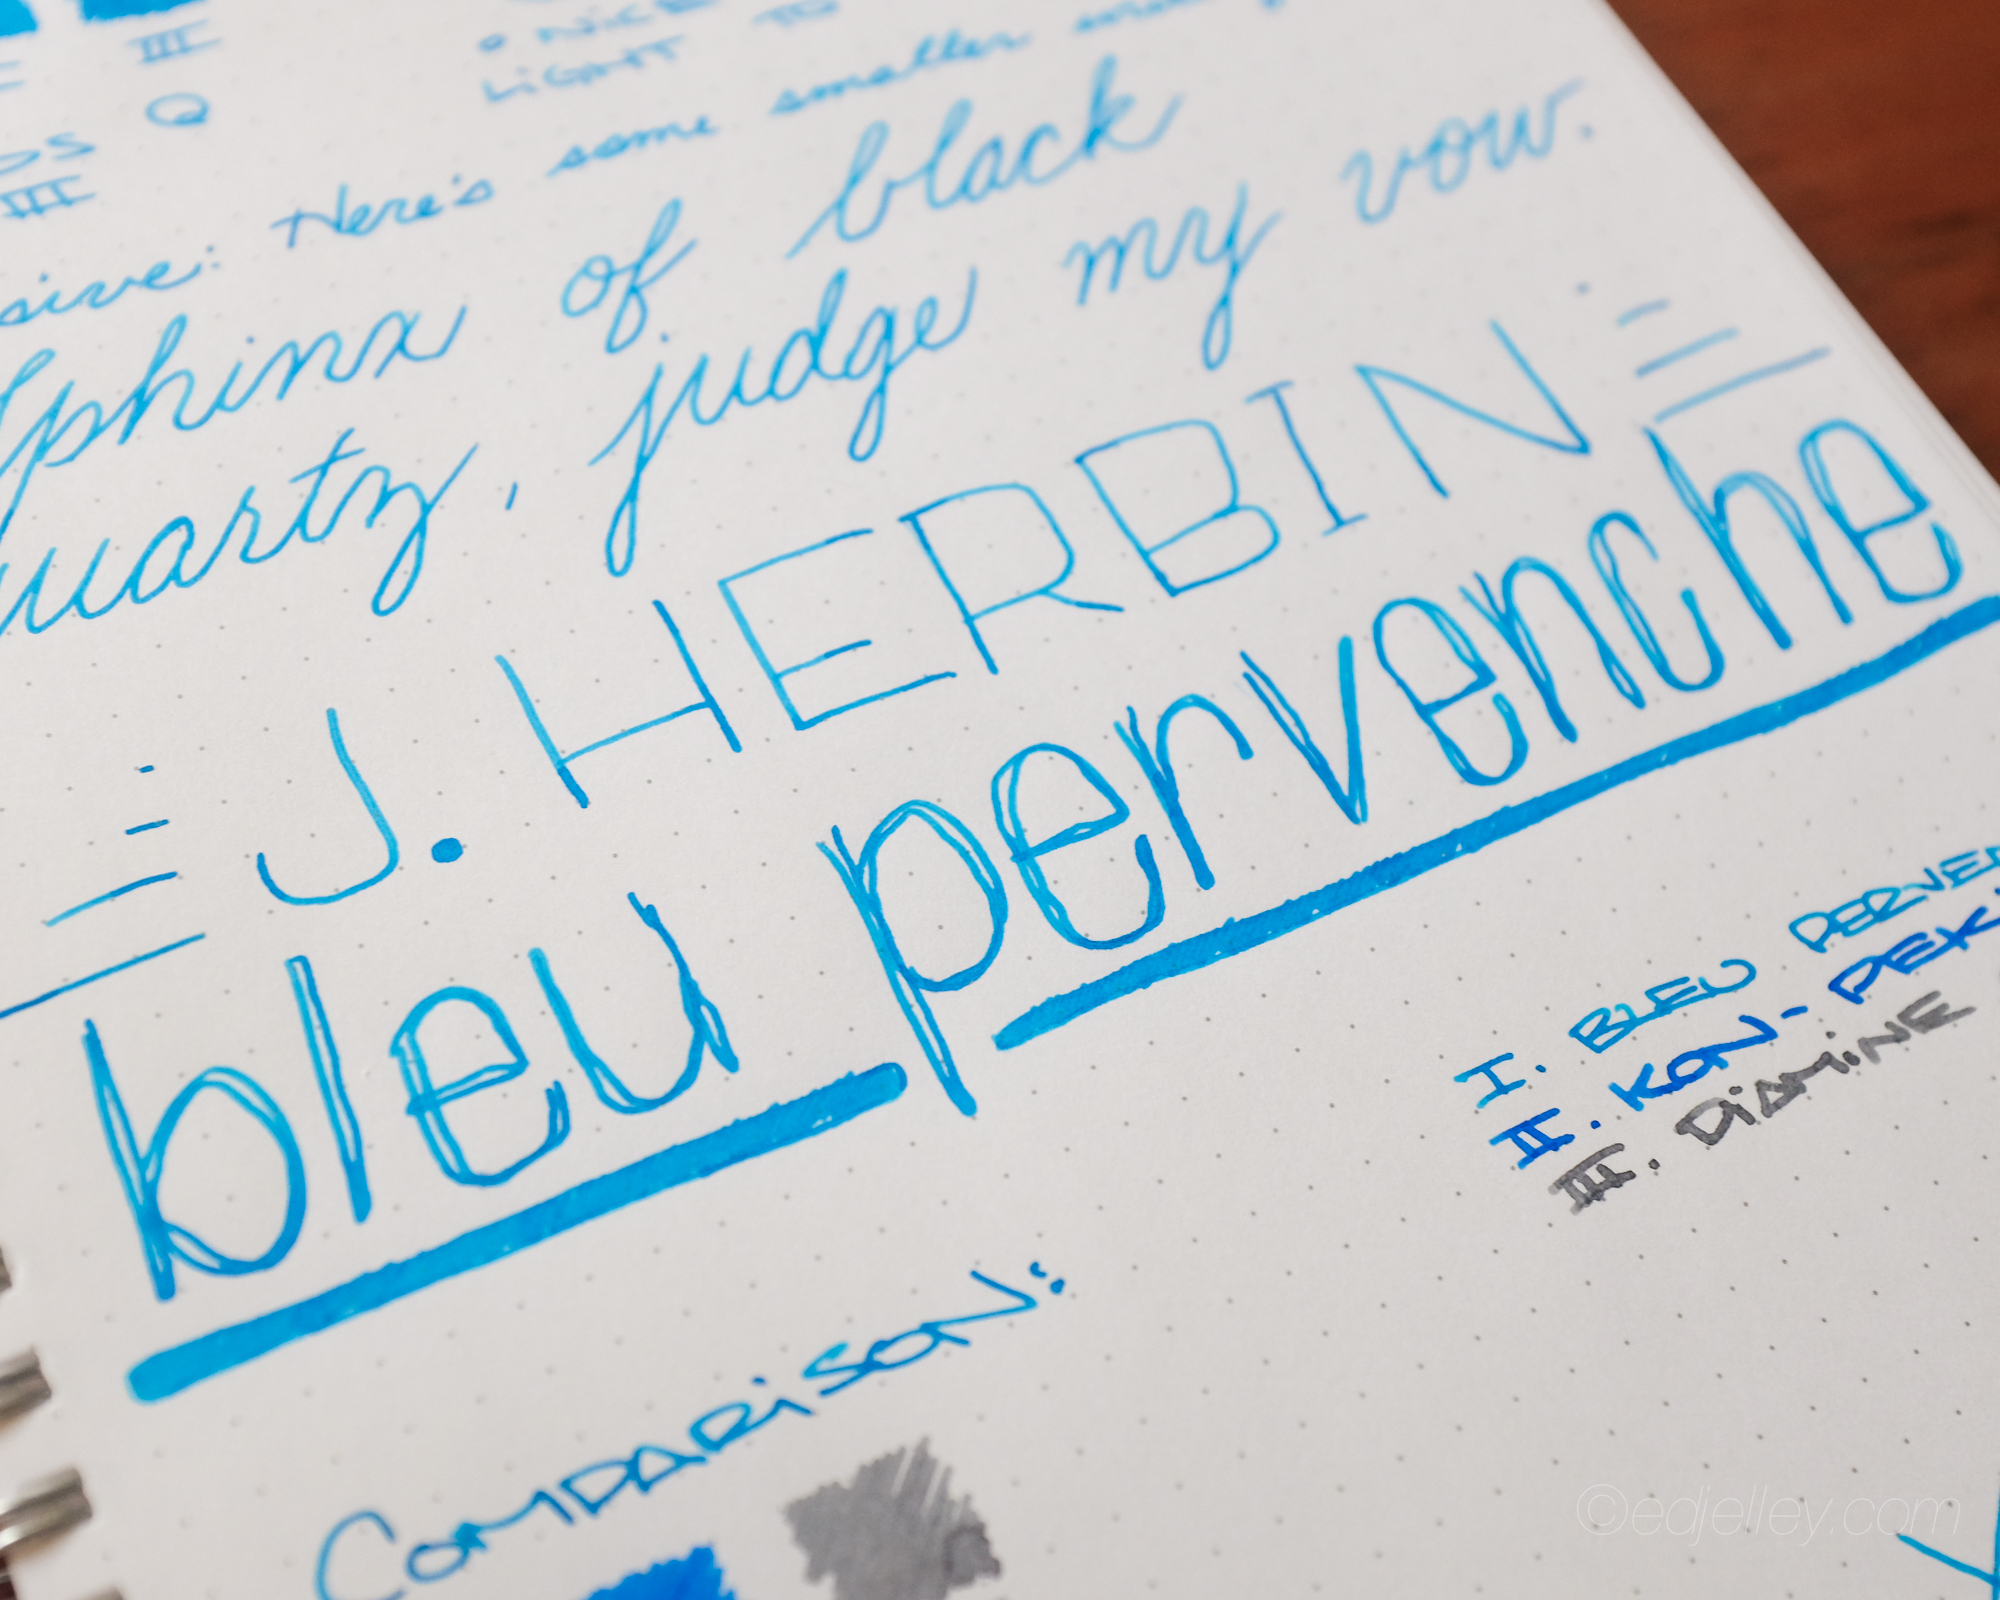 III
• NiCE TO
LiGHT
Q
DS
III
sive: Here's some smaller
Sphinx of black
quartz, judge my vow.
J. HERBIN
bleu pervenche
I. BLEU PERVEN
II. KON-PEK
III. DiAMiNE
COMPARiSON:
©edjelley.com